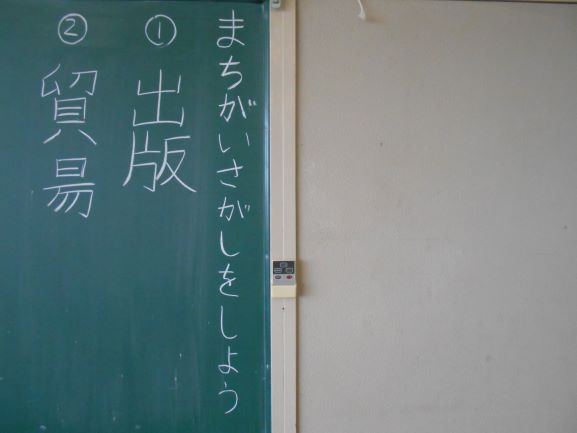 まちがいさがしをしよう
① 出版
② 貿易